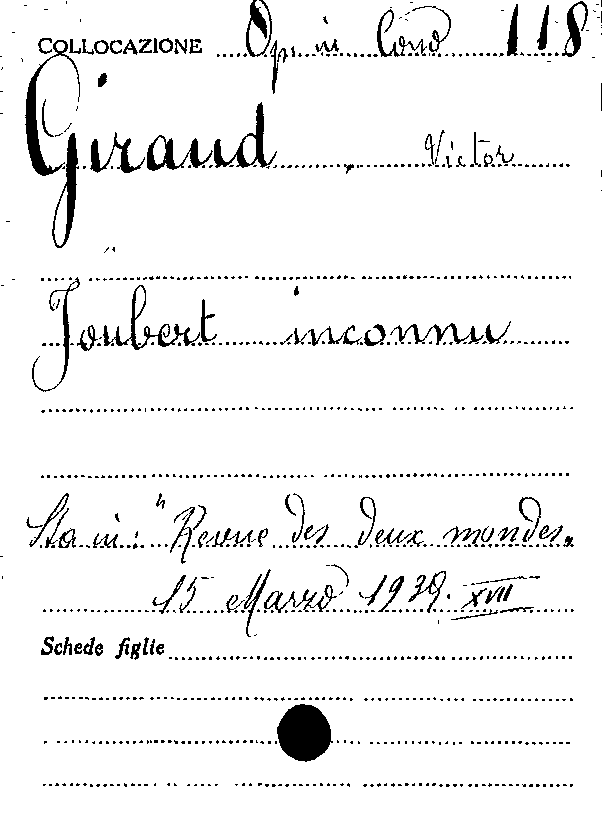 COLLOCAZIONE Op. in Cons 118
Giraud, Victor
Joubert inconnu
Sta in: "Revue des deux mondes"
15 Marzo 1939. XVII
Schede figlie